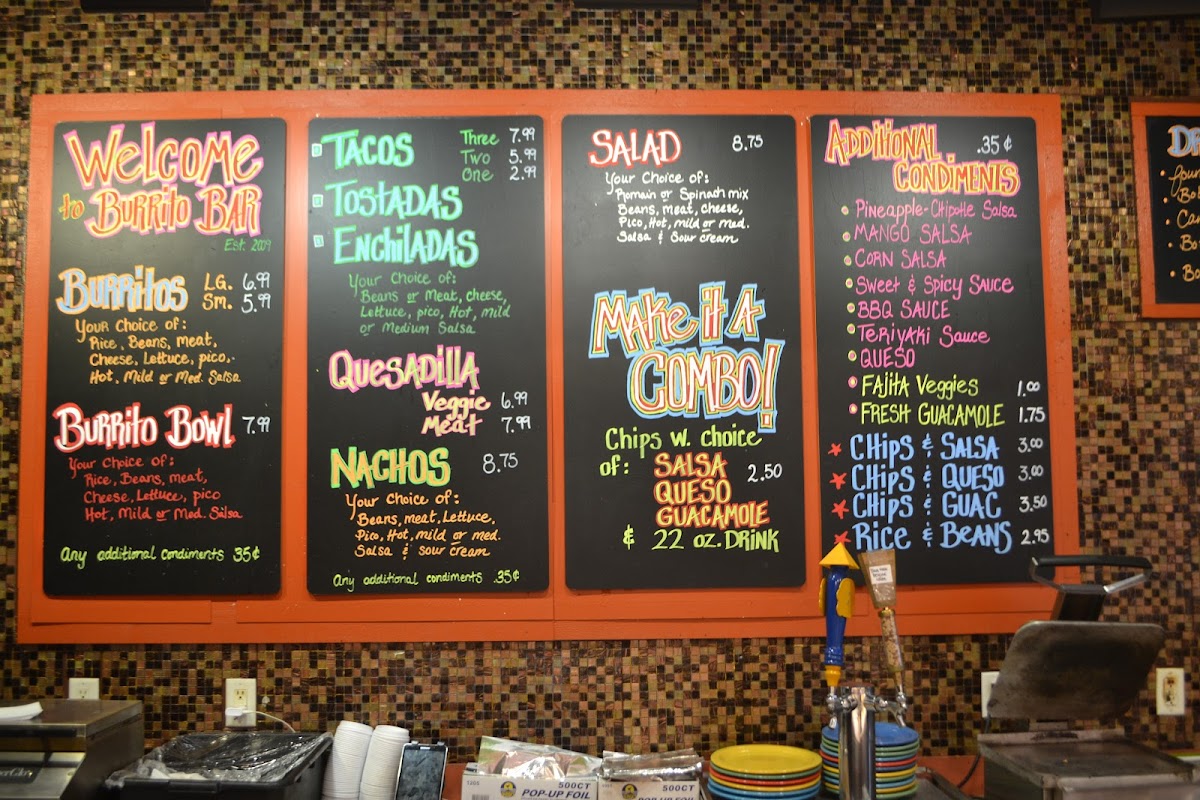 Welcome
to Burrito Bar
Est. 2009
Burritos LG. 6.99
Sm. 5.99
Your Choice of:
Rice, Beans, meat,
Cheese, Lettuce, pico,
Hot, Mild or Med. Salsa
Burrito Bowl 7.99
Your Choice of:
Rice, Beans, meat,
Cheese, Lettuce, pico
Hot, Mild or Med. Salsa
Any additional condiments 35¢
Tacos Three 7.99
Two 5.99
One 2.99
Tostadas
Enchiladas
Your Choice of:
Beans or Meat, cheese,
Lettuce, pico, Hot, mild
or Medium Salsa
Quesadilla
Veggie 6.99
Meat 7.99
Nachos 8.75
Your Choice of:
Beans, meat, Lettuce,
Pico, Hot, mild or med.
Salsa & sour cream
Any additional condiments .35¢
Salad 8.75
Your Choice of:
Romain or Spinach mix
Beans, meat, cheese,
Pico, Hot, mild or med.
Salsa & Sour cream
Make it A
Combo!
Chips w. choice
of: Salsa 2.50
Queso
Guacamole
& 22 oz. Drink
Additional .35¢
Condiments
Pineapple-Chipotle Salsa
Mango Salsa
Corn Salsa
Sweet & Spicy Sauce
BBQ Sauce
Teriyaki Sauce
Queso
Fajita Veggies 1.00
Fresh Guacamole 1.75
Chips & Salsa 3.00
Chips & Queso 3.00
Chips & Guac 3.50
Rice & Beans 2.95
500CT
POP-UP FOIL
500CT
POP-UP FOIL